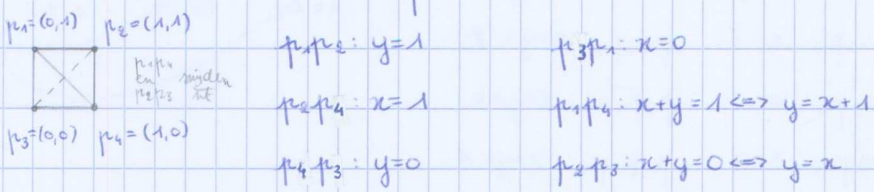 p1=(0,1) p2=(1,1)
p1p4
en snijden
p2p3
p3=(0,0) p4=(1,0)
p1p2: y=1
p2p4: x=1
p4p3: y=0
p3p1: x=0
p1p4: x+y=1 <=> y=x+1
p2p3: x+y=0 <=> y=x